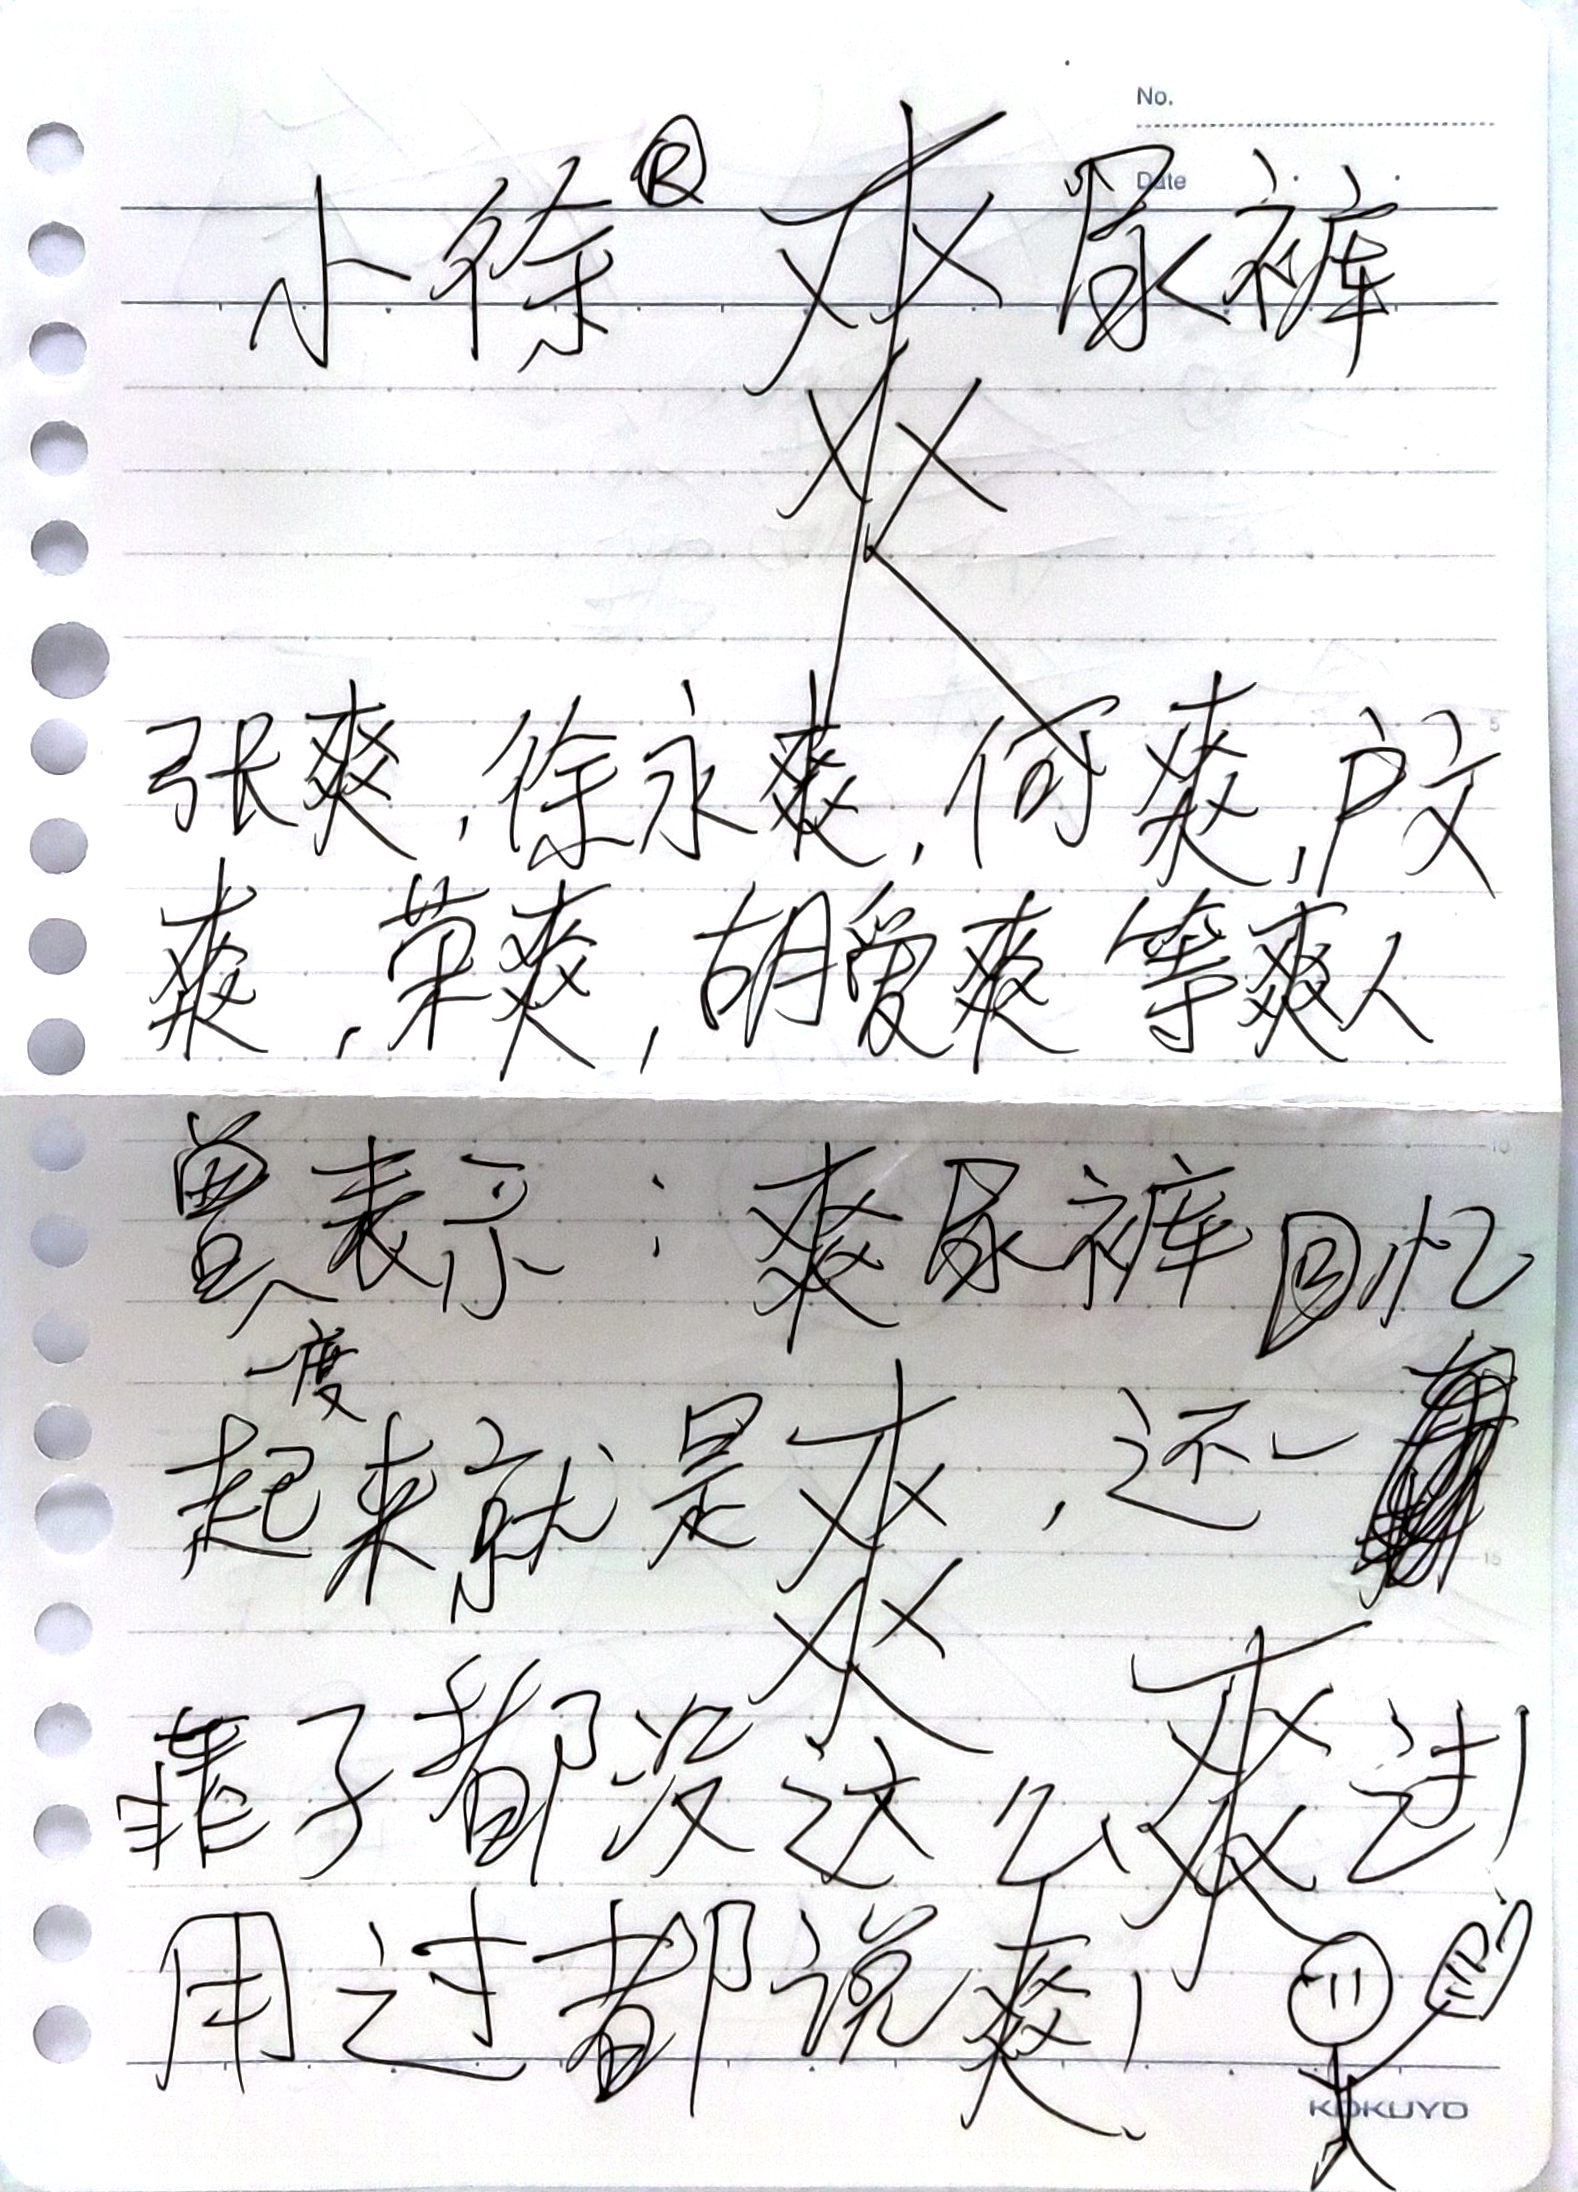 No.
Date
小徐® 爽尿裤
张爽,徐永爽,何爽,卢文
爽,荣爽,胡爱爽等爽人
曾表示:爽尿裤回忆
一度
起来就是爽,还一
菲子都没这么爽过!
用过都说爽!
5
10
15
KOKUYO